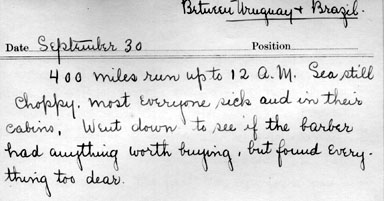 Between Uruguay & Brazil.
Date September 30 Position
400 miles run up to 12 A.M. Sea still
choppy. most everyone sick and in their
cabins. Went down to see if the barber
had anything worth buying, but found every-
thing too dear.